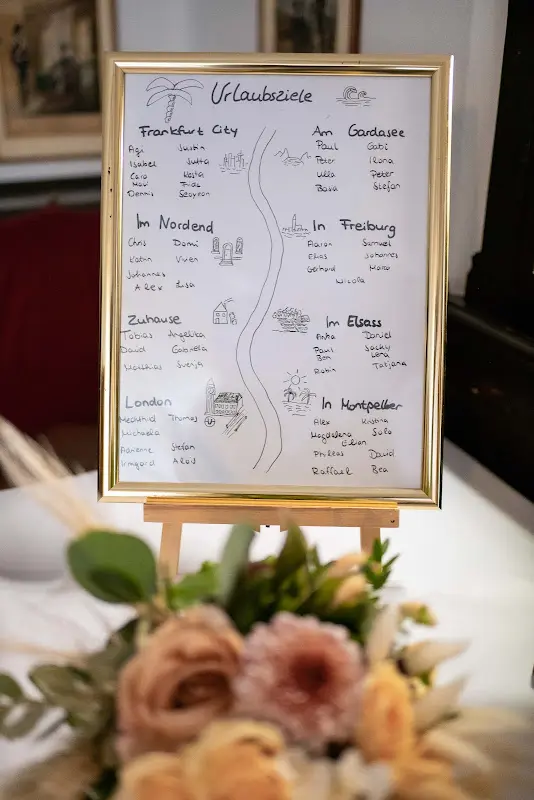 Urlaubsziele
Frankfurt City
Agi Justin
Isabel Jutta
Caro Kosta
Dennis
Im Nordend
Chris Domi
Katrin Viven
Johannes
Alex Lisa
Zuhause
Tobias Angelika
David Gabriela
Matthias Svenja
London
Mechthild Thomas
Michaela
Adrienne Stefan
Irmgard Alois
Am Gardasee
Paul Gabi
Peter Ilona
Ulla Peter
Stefan
In Freiburg
Aaron Samuel
Elias Johannes
Gerhard
Nicola
Im Elsass
Anka Daniel
Paul Jacky
Ben Lena
Robin Tatjana
In Montpellier
Alex Kristina
Magdalena
Philleas David
Raffael Bea